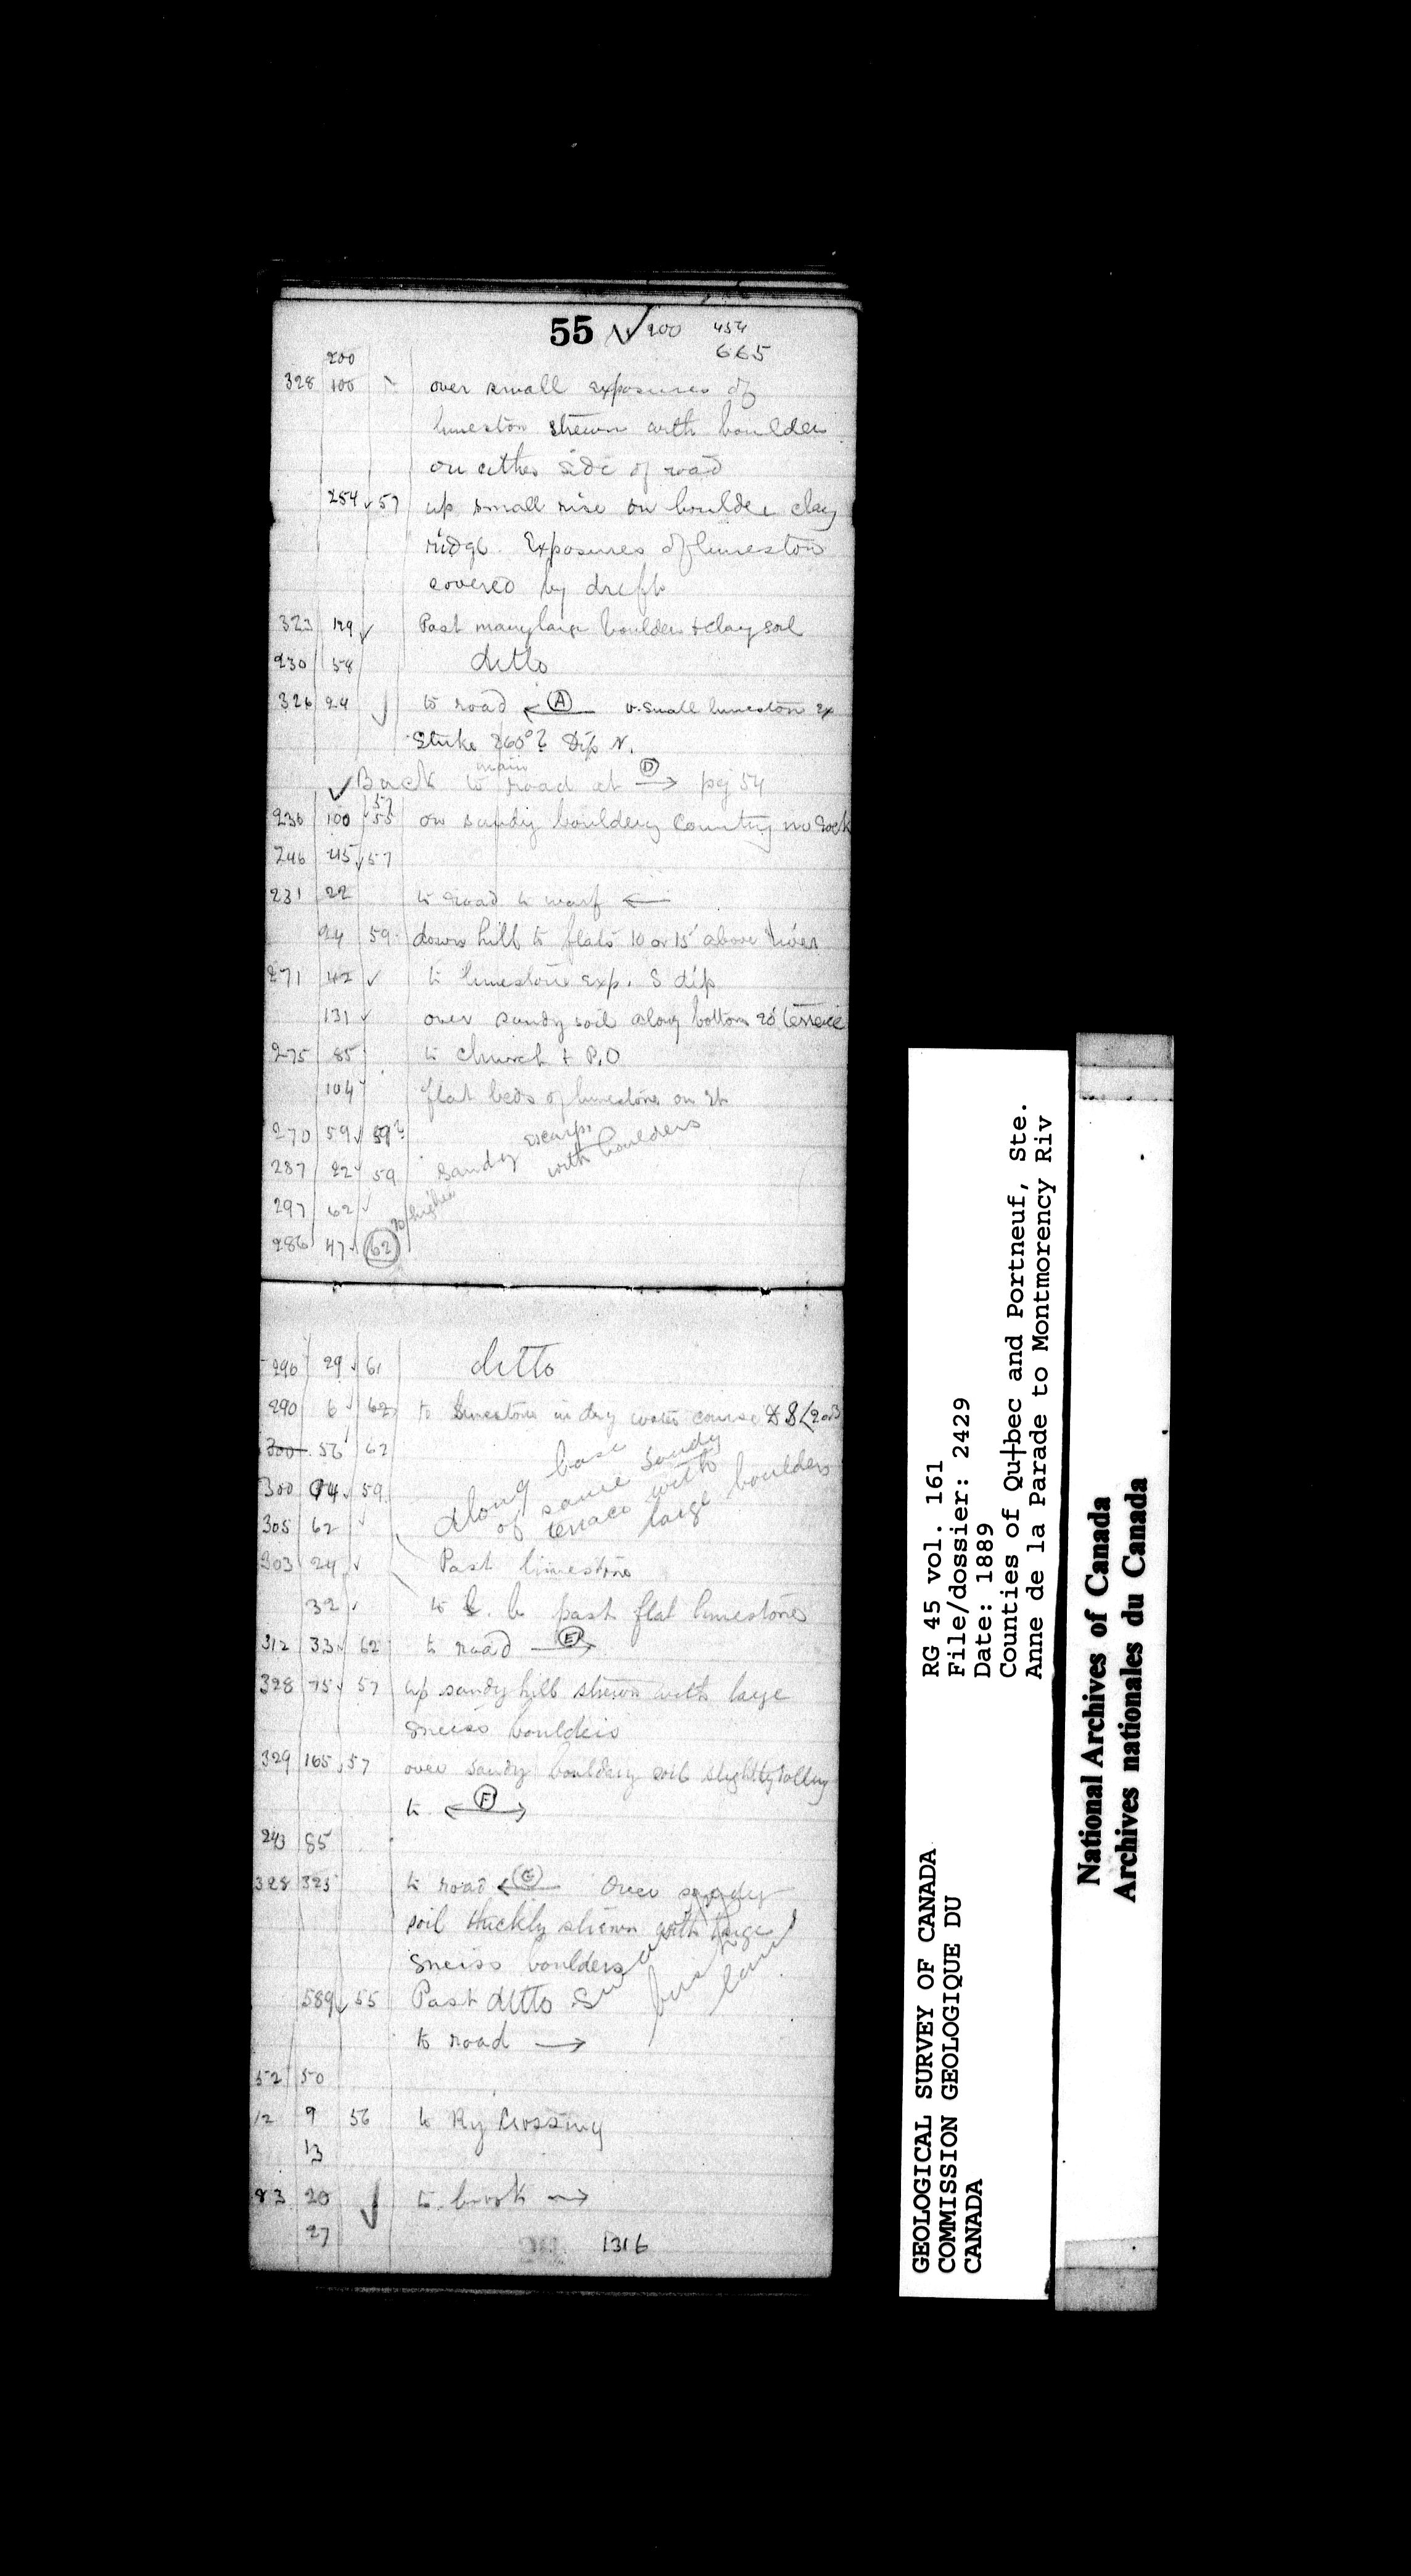 55 200 454
665
200
328 100 over small exposures of
limeston strewn with boulders
on either side of road
254 57 up small rise on boulder clay
ridge. Exposures of limeston
covered by drift
323 129 Past many large boulders + clay soil
230 58 ditto
326 24 to road ← A v. small limeston ex
Strike 260°? Dip N.
main
Back to road at D → pg 54
57
236 100 55 on sandy bouldery country no rock
246 45 57
231 22 to road to warf ←
24 59 down hill to flats 10 or 15' above river
271 42 to limestone exp. S dip
131 over sandy soil along bottom 20' terrace
275 85 to church + P.O
104 flat beds of limestone on
270 59 59? escarp.
287 22 59 sandy with boulders
297 62
286 47 62 20' higher
296 29 61 ditto
290 6 62 to limestone in dry water course
300 56 62
300 59 along base
305 62 of same sandy
terrace with
large boulders
303 24 Past limestone
32 to past flat limestone
312 33 62 to road E →
328 75 57 up sandy hill strewn with large
gneiss boulders
329 165 57 over sandy bouldery soil slightly rolling
to ← F →
243 85
328 323 to road ← Over sandy
soil thickly strewn with large
gneiss boulders
589 55 Past ditto
to road →
52 50
12 9 56 to Ry Crossing
13
83 20 to brook →
27
1316
GEOLOGICAL SURVEY OF CANADA
COMMISSION GEOLOGIQUE DU
CANADA
RG 45 vol. 161
File/dossier: 2429
Date: 1889
Counties of Qu†bec and Portneuf, Ste.
Anne de la Parade to Montmorency Riv
National Archives of Canada
Archives nationales du Canada